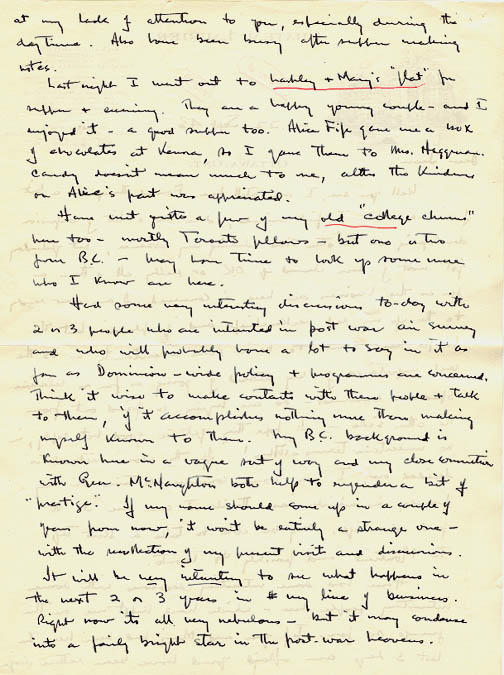 at my lack of attention to you, especially during the
daytime. Also have been busy after supper making
notes.
Last night I went out to Hartley + Mary's "flat" for
supper + evening. They are a happy young couple – and I
enjoyed it – a good supper too. Alice Fife gave me a box
of chocolates at Kenora, so I gave them to Mrs. Heggman.
Candy doesn't mean much to me, altho the kindness
on Alice's part was appreciated.
Have met quite a few of my old "college chums"
here too – mostly Toronto fellows – but one or two
from B.C. – may have time to look up some more
who I know are here.
Had some very interesting discussions to-day with
2 or 3 people who are interested in post war air survey
and who will probably have a lot to say in it as
far as Dominion-wide policy + programmes are concerned.
Think it wise to make contacts with these people + talk
to them, if it accomplishes nothing more than making
myself known to them. My B.C. background is
known here in a vague sort of way and my close connection
with Gen. McNaughton both help to engender a bit of
"prestige". If my name should come up in a couple of
years from now, it won't be entirely a strange one –
with the recollection of my present visit and discussions.
It will be very interesting to see what happens in
the next 2 or 3 years in my line of business.
Right now it's all very nebulous – but it may condense
into a fairly bright star in the post-war heavens.